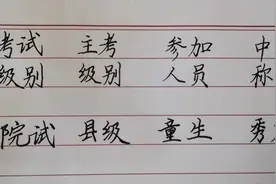 考试 主考 参加 中
级别 级别 人员 称
院试 县级 童生 秀